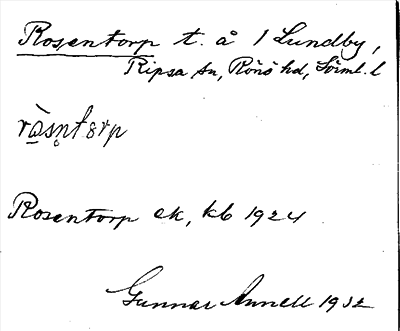 Rosentorp t. å 1 Lundby,
Ripsa sn, Rönö hd, Sörml. l
ràsn̥tɵrp
Rosentorp ek, kb 1924
Gunnar Annell 1932